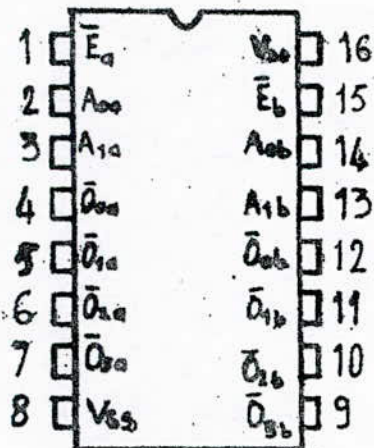 1 Ēa VDD 16
2 A0a Ēb 15
3 A1a A0b 14
4 Ō0a A1b 13
5 Ō1a Ō0b 12
6 Ō2a Ō1b 11
7 Ō3a Ō2b 10
8 VSS Ō3b 9